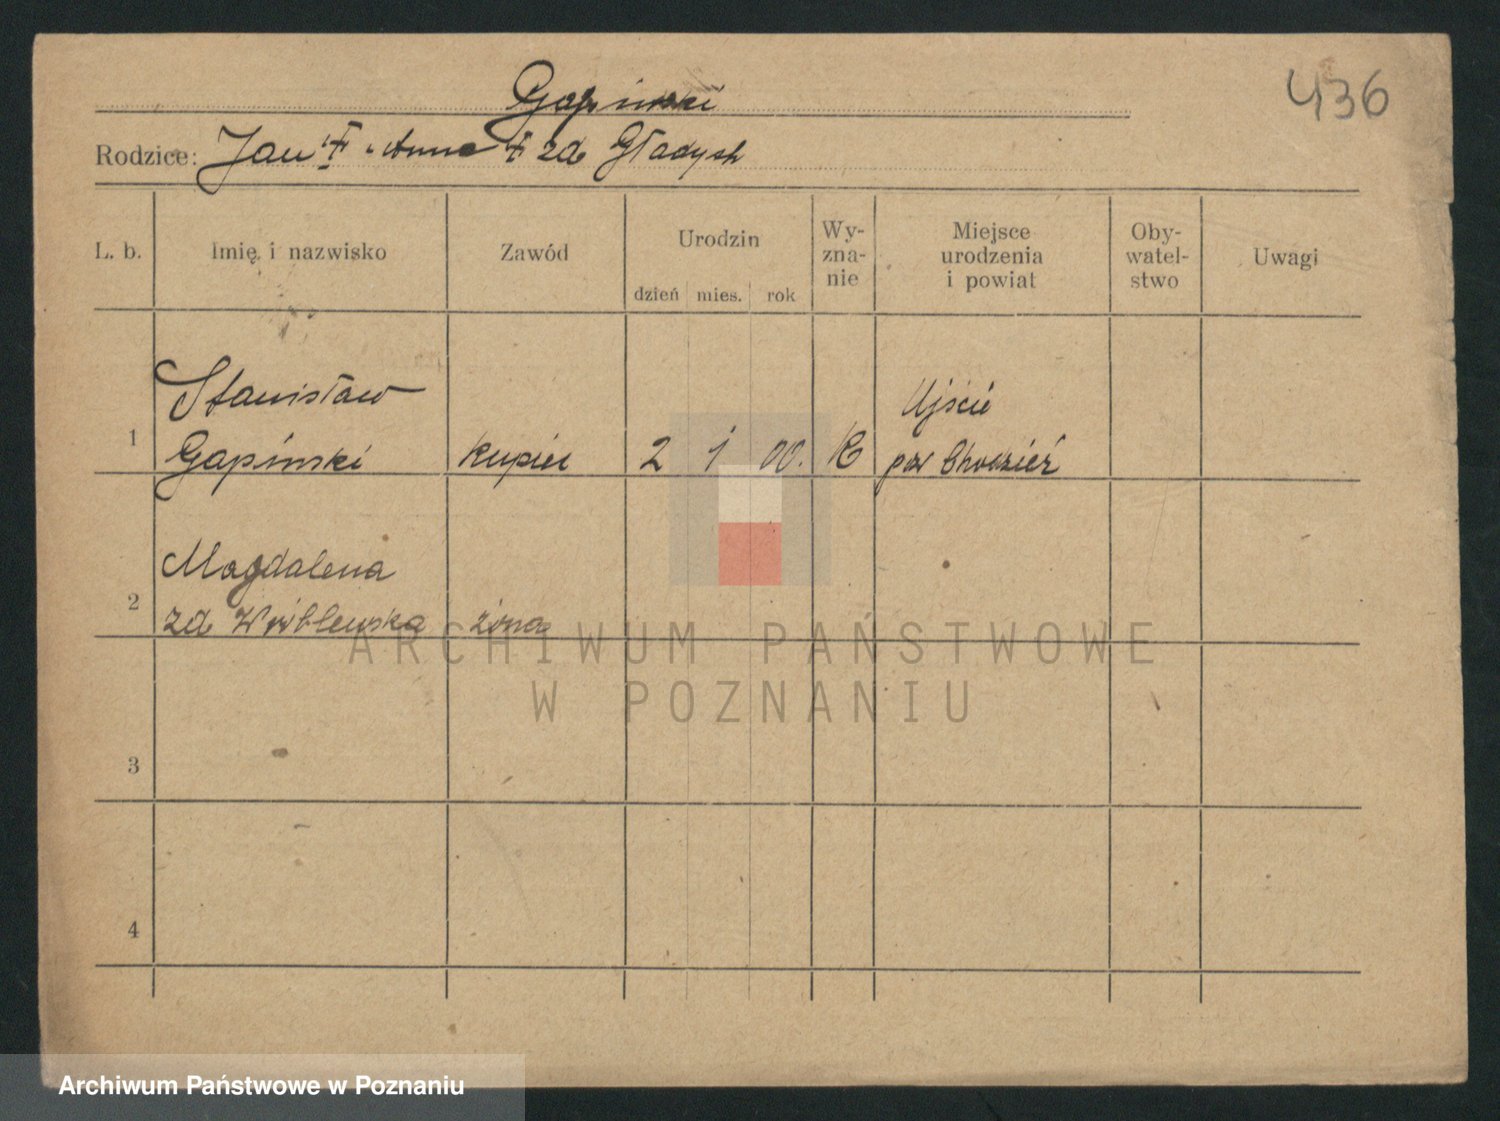 436
Gapinski
Rodzice: Jan † Anna † zd Gładysh
L. b.
Imię i nazwisko
Zawód
Urodzin
dzień mies. rok
Wy-
zna-
nie
Miejsce
urodzenia
i powiat
Oby-
watel-
stwo
Uwagi
1
Stanisław
Gapinski
kupiec
2 1 00.
K
Ujście
pow Chodzież
2
Magdalena
zd Wróblewska
żona
ARCHIWUM PAŃSTWOWE
W POZNANIU
3
4
Archiwum Państwowe w Poznaniu